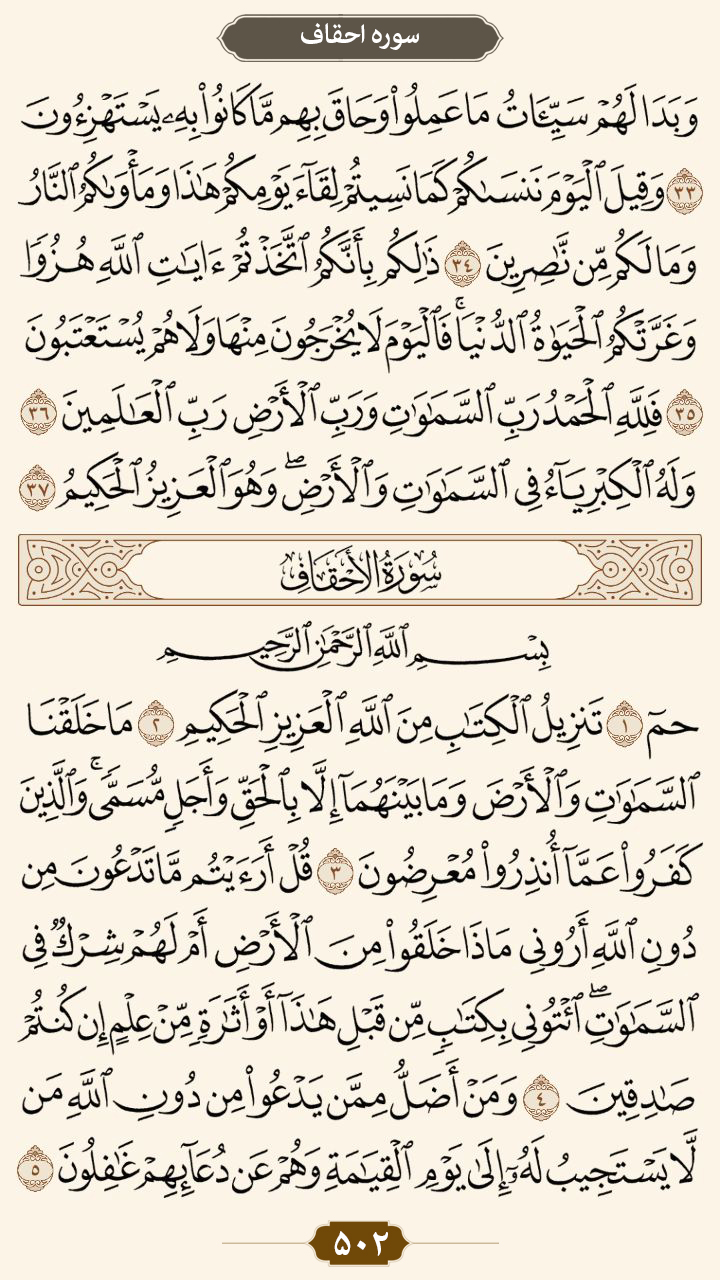 سوره احقاف
وَبَدَا لَهُمْ سَيِّـَٔاتُ مَا عَمِلُوا۟ وَحَاقَ بِهِم مَّا كَانُوا۟ بِهِۦ يَسْتَهْزِءُونَ
٣٣ وَقِيلَ ٱلْيَوْمَ نَنسَىٰكُمْ كَمَا نَسِيتُمْ لِقَآءَ يَوْمِكُمْ هَـٰذَا وَمَأْوَىٰكُمُ ٱلنَّارُ
وَمَا لَكُم مِّن نَّـٰصِرِينَ ٣٤ ذَٰلِكُم بِأَنَّكُمُ ٱتَّخَذْتُمْ ءَايَـٰتِ ٱللَّهِ هُزُوًا
وَغَرَّتْكُمُ ٱلْحَيَوٰةُ ٱلدُّنْيَا ۚ فَٱلْيَوْمَ لَا يُخْرَجُونَ مِنْهَا وَلَا هُمْ يُسْتَعْتَبُونَ
٣٥ فَلِلَّهِ ٱلْحَمْدُ رَبِّ ٱلسَّمَـٰوَٰتِ وَرَبِّ ٱلْأَرْضِ رَبِّ ٱلْعَـٰلَمِينَ ٣٦
وَلَهُ ٱلْكِبْرِيَآءُ فِى ٱلسَّمَـٰوَٰتِ وَٱلْأَرْضِ ۖ وَهُوَ ٱلْعَزِيزُ ٱلْحَكِيمُ ٣٧
سُورَةُ الأَحْقَافِ
بِسْمِ ٱللَّهِ ٱلرَّحْمَـٰنِ ٱلرَّحِيمِ
حمٓ ١ تَنزِيلُ ٱلْكِتَـٰبِ مِنَ ٱللَّهِ ٱلْعَزِيزِ ٱلْحَكِيمِ ٢ مَا خَلَقْنَا
ٱلسَّمَـٰوَٰتِ وَٱلْأَرْضَ وَمَا بَيْنَهُمَآ إِلَّا بِٱلْحَقِّ وَأَجَلٍ مُّسَمًّى ۚ وَٱلَّذِينَ
كَفَرُوا۟ عَمَّآ أُنذِرُوا۟ مُعْرِضُونَ ٣ قُلْ أَرَءَيْتُم مَّا تَدْعُونَ مِن
دُونِ ٱللَّهِ أَرُونِى مَاذَا خَلَقُوا۟ مِنَ ٱلْأَرْضِ أَمْ لَهُمْ شِرْكٌ فِى
ٱلسَّمَـٰوَٰتِ ۖ ٱئْتُونِى بِكِتَـٰبٍ مِّن قَبْلِ هَـٰذَآ أَوْ أَثَـٰرَةٍ مِّنْ عِلْمٍ إِن كُنتُمْ
صَـٰدِقِينَ ٤ وَمَنْ أَضَلُّ مِمَّن يَدْعُوا۟ مِن دُونِ ٱللَّهِ مَن
لَّا يَسْتَجِيبُ لَهُۥٓ إِلَىٰ يَوْمِ ٱلْقِيَـٰمَةِ وَهُمْ عَن دُعَآئِهِمْ غَـٰفِلُونَ ٥
۵۰۲